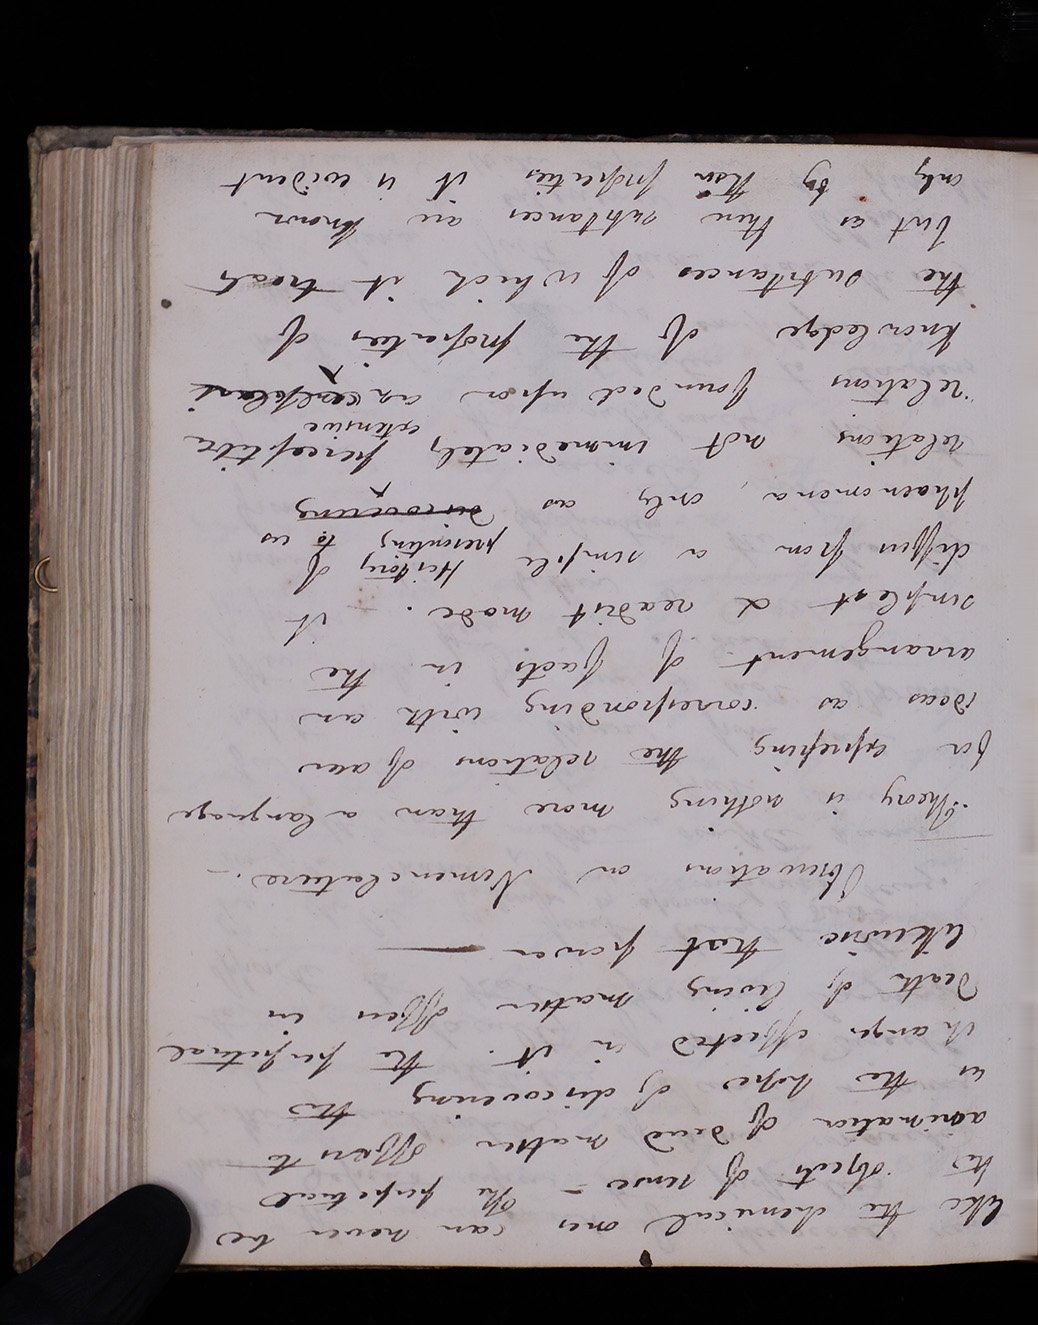 like the chemical ones can never be
the objects of sense – The perpetual
animation of dead matter offers to
us the hopes of discovering the
changes effected in it. the perpetual
death of living matter offers us
likewise that power —
Observations on Nomenclature. –
Theory is nothing more than a language
for expressing the relations of our
ideas as corresponding with an
arrangement of facts in the
simplest & readiest mode. It
differs from a simple History of
presenting to us
phaenomena, only as discovering
relations not immediately perceptible
extensive
relations founded upon an
knowledge of the properties of
the substances of which it treats
but as these substances are known
only by their properties it is evident